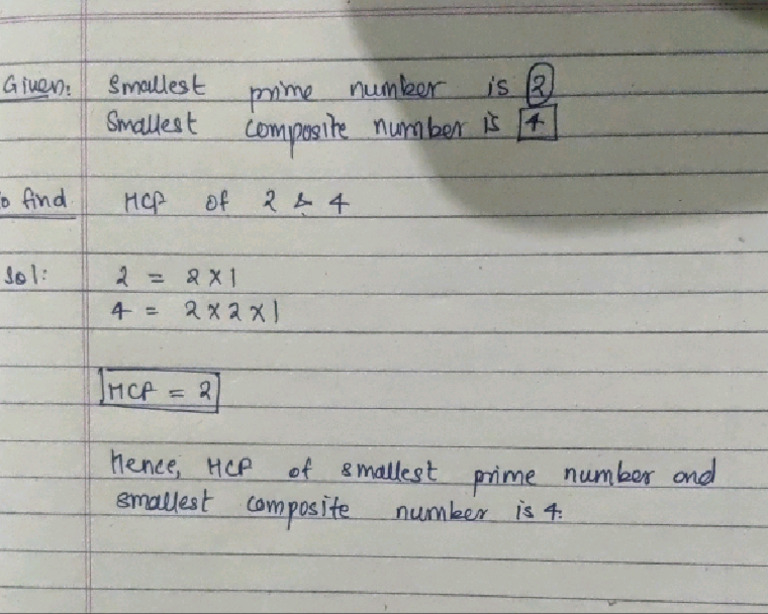 Given: Smallest prime number is 2
Smallest composite number is 4
o find HCF of 2 & 4
Sol: 2 = 2 x 1
4 = 2 x 2 x 1
HCF = 2
Hence, HCF of smallest prime number and
smallest composite number is 4.